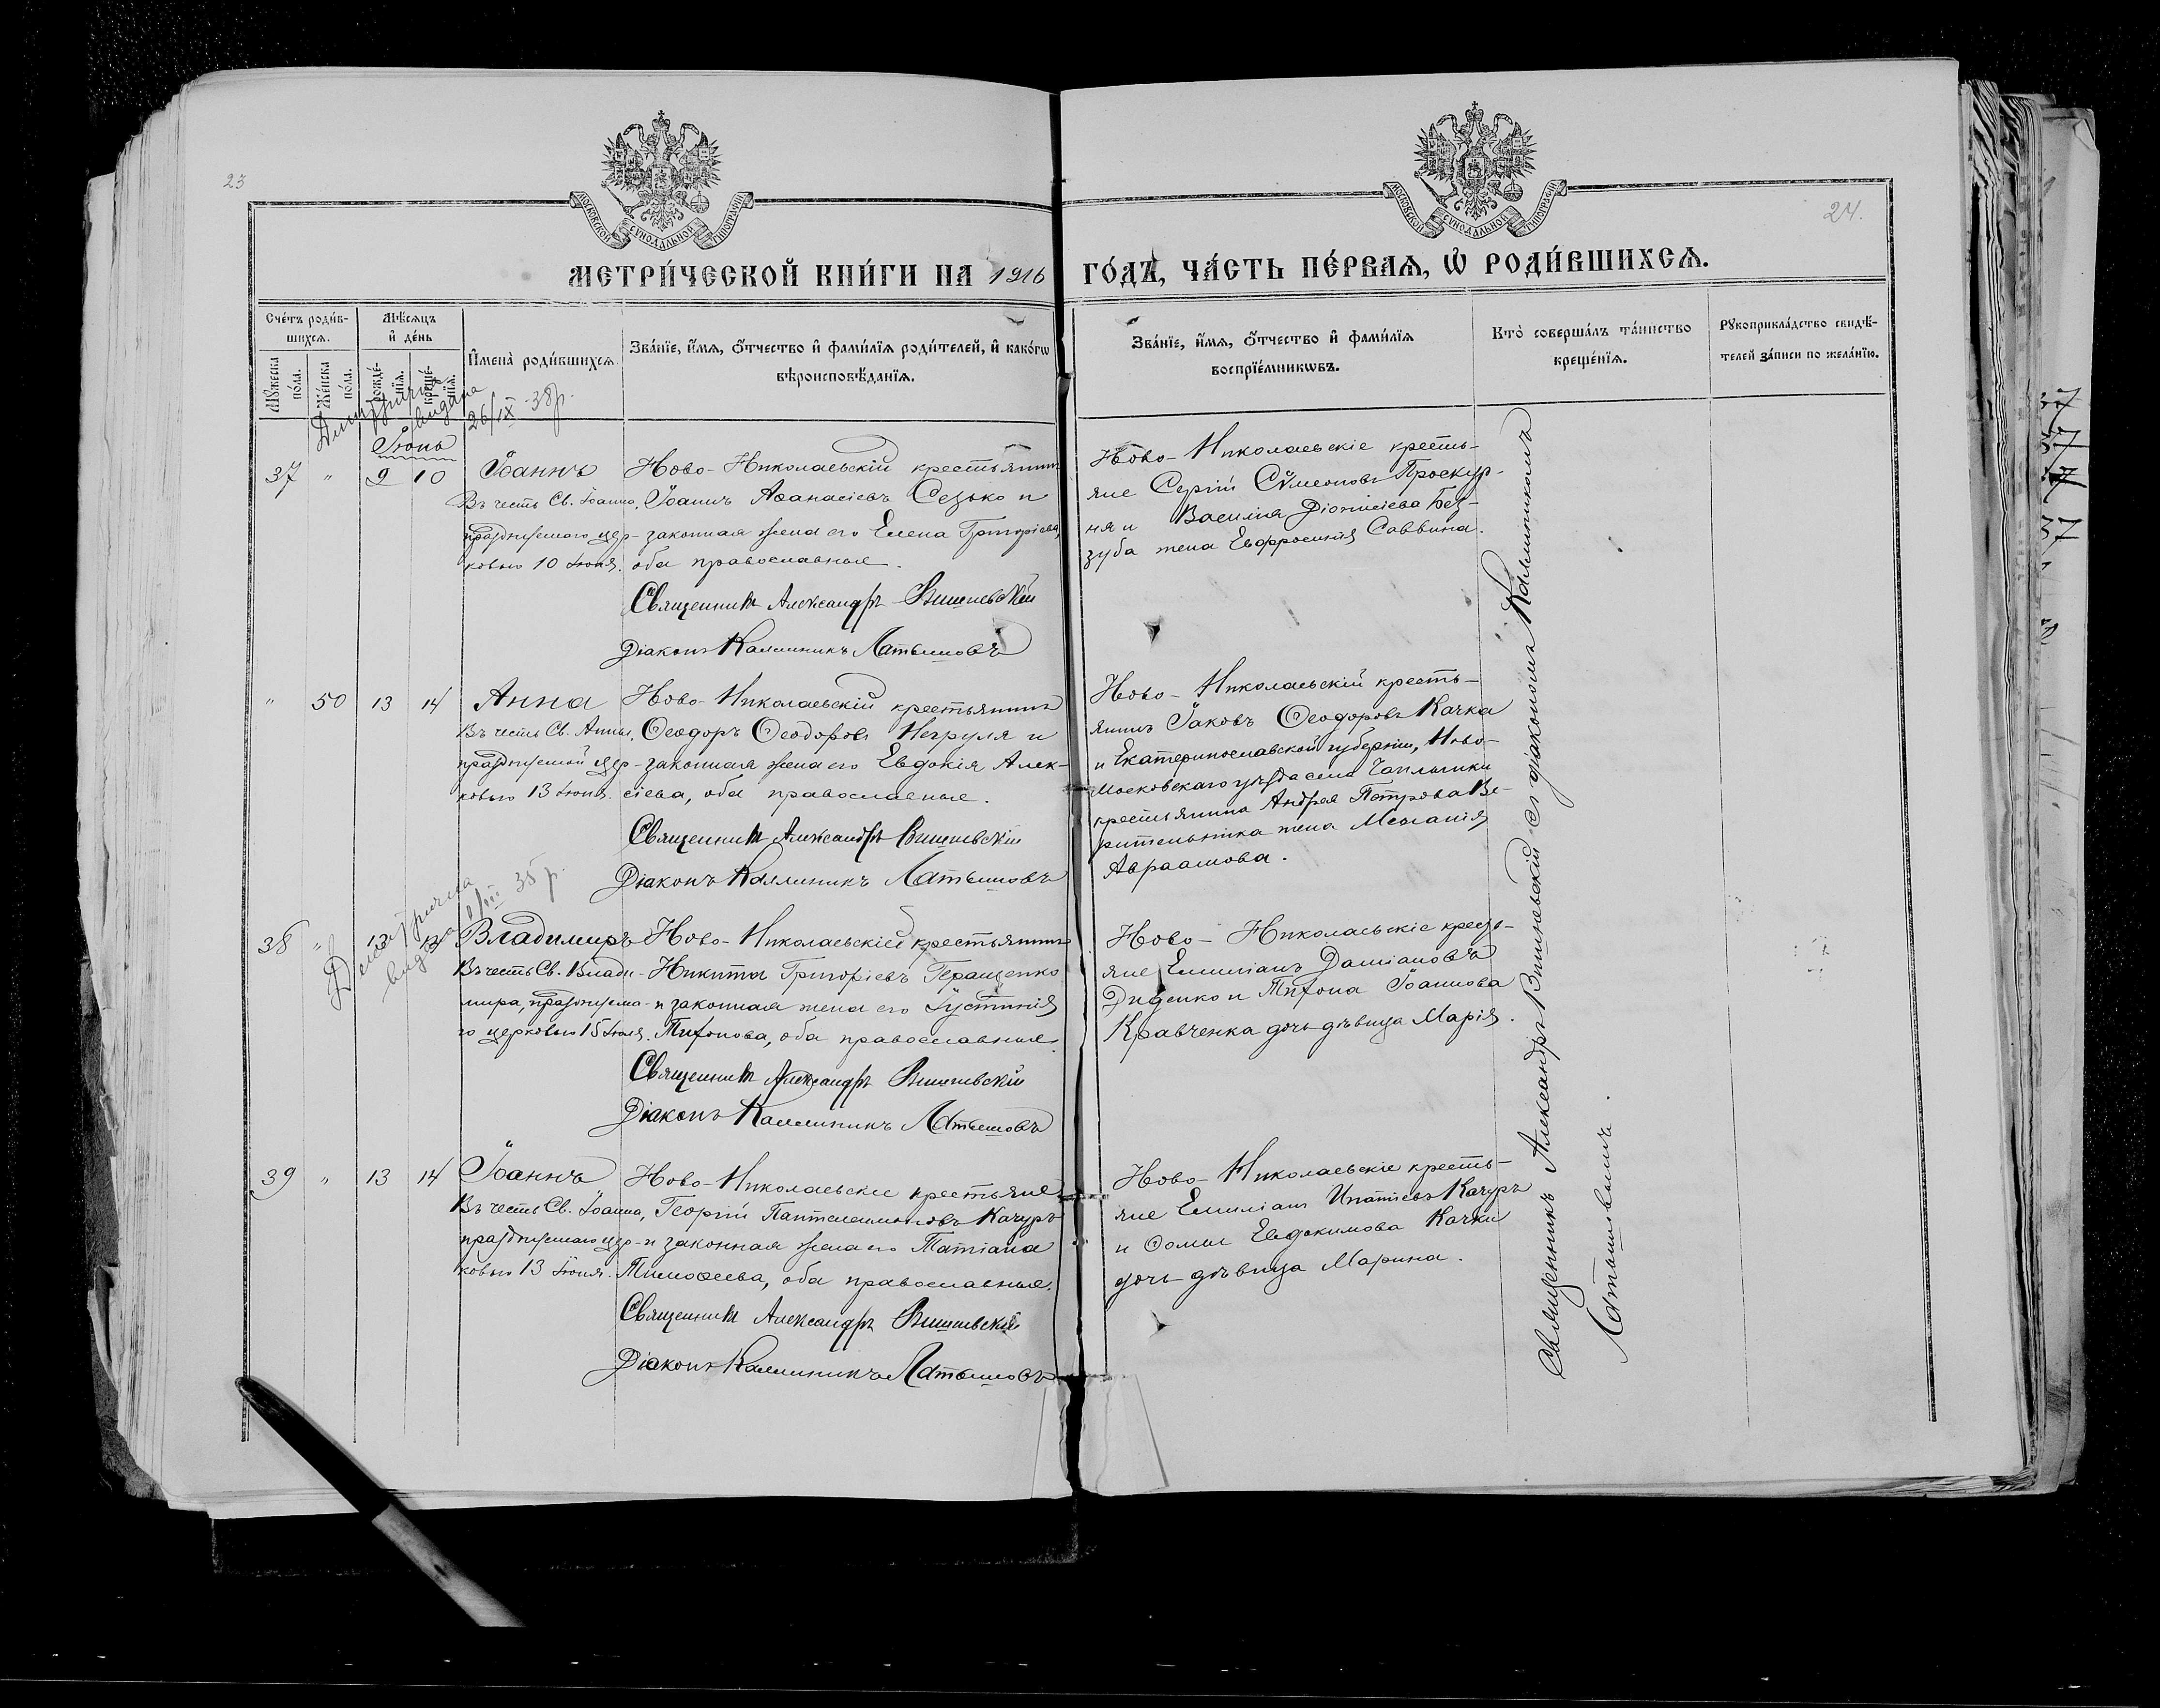 23
24.
МОСКОВСКОЙ СѴНОДАЛЬНОЙ ТИПОГРАФІИ
МОСКОВСКОЙ СѴНОДАЛЬНОЙ ТИПОГРАФІИ
МЕТРИ́ЧЕСКОЙ КНИ́ГИ НА 1916 ГО́ДЪ, ЧА́СТЬ ПЕ́РВАѦ, Ѡ҆ РОДИ́ВШИХСѦ.
Сче́тъ роди́в-
шихсѧ.
Мꙋ́жеска по́ла.
Же́нска по́ла.
Мѣ́сѧцъ
и҆ де́нь
рожде́-нїѧ.
креще́-нїѧ.
И҆мена̀ роди́вшихсѧ.
Зва́нїе, и҆́мѧ, ѻ҆́тчество и҆ фами́лїѧ роди́телей, и҆ како́гѡ
вѣроисповѣ́данїѧ.
Зва́нїе, и҆́мѧ, ѻ҆́тчество и҆ фами́лїѧ
воспрїе́мникѡвъ.
Кто̀ соверша́лъ та́инство
креще́нїѧ.
Рꙋкоприкла́дство свидѣ́-
телей за́писи по жела́нїю.
видана
26/IX 38р.
Іюнь
37 " 9 10 Іоаннъ
Въ честь Св. Іоанна,
празднуемаго цер-
ковью 10 Іюня.
Ново-Николаевскій крестьянинъ
Іоаннъ Аѳанасіевъ Сезько и
законная жена его Елена Григоріева,
оба православные.
Священникъ Александръ Вишневскій
Діаконъ Каллиникъ Латышовъ
Ново-Николаевскіе кресть-
яне Сергій Сѵмеоновъ Проскур-
ня и Василія Діонисіева Без-
зуба жена Евфросинія Саввина.
" 50 13 14 Анна
Въ честь Св. Анны,
празднуемой цер-
ковью 13 Іюня.
Ново-Николаевскій крестьянинъ
Ѳеодоръ Ѳеодоровъ Негруля и
законная жена его Евдокія Алек-
сіева, оба православные.
Священникъ Александръ Вишневскій
Діаконъ Каллиникъ Латышовъ
Ново-Николаевскій кресть-
янинъ Іаковъ Ѳеодоровъ Качка
и Екатеринославской губерніи, Ново-
московскаго уѣзда села Чаплынки
крестьянина Андрея Петрова Ве-
рительника жена Меланія
Авраамова.
видана
/III 35 р.
38 " 13 14 Владимиръ
Въ честь Св. Влади-
мира, празднуема-
го церковью 15 Іюля.
Ново-Николаевскій крестьянинъ
Никита Григоріевъ Геращенко
и законная жена его Іустинія
Тихонова, оба православные.
Священникъ Александръ Вишневскій
Діаконъ Каллиникъ Латышовъ
Ново-Николаевскіе кресть-
яне Емиліанъ Даміановъ
Диденко и Тихона Іоаннова
Кравченка дочь дѣвица Марія.
39 " 13 14 Іоаннъ
Въ честь Св. Іоанна,
празднуемаго цер-
ковью 13 Іюня.
Ново-Николаевскіе крестьяне
Георгій Пантелеимоновъ Качуръ
и законная жена его Татіана
Тимоѳеева, оба православные.
Священникъ Александръ Вишневскій
Діаконъ Каллиникъ Латышовъ
Ново-Николаевскіе кресть-
яне Емиліанъ Ипатіевъ Качуръ
и Ѳомы Евдокимова Качки
дочь дѣвица Марина.
Священникъ Александръ Вишневскій съ діакономъ Каллиникомъ
Латышевымъ.